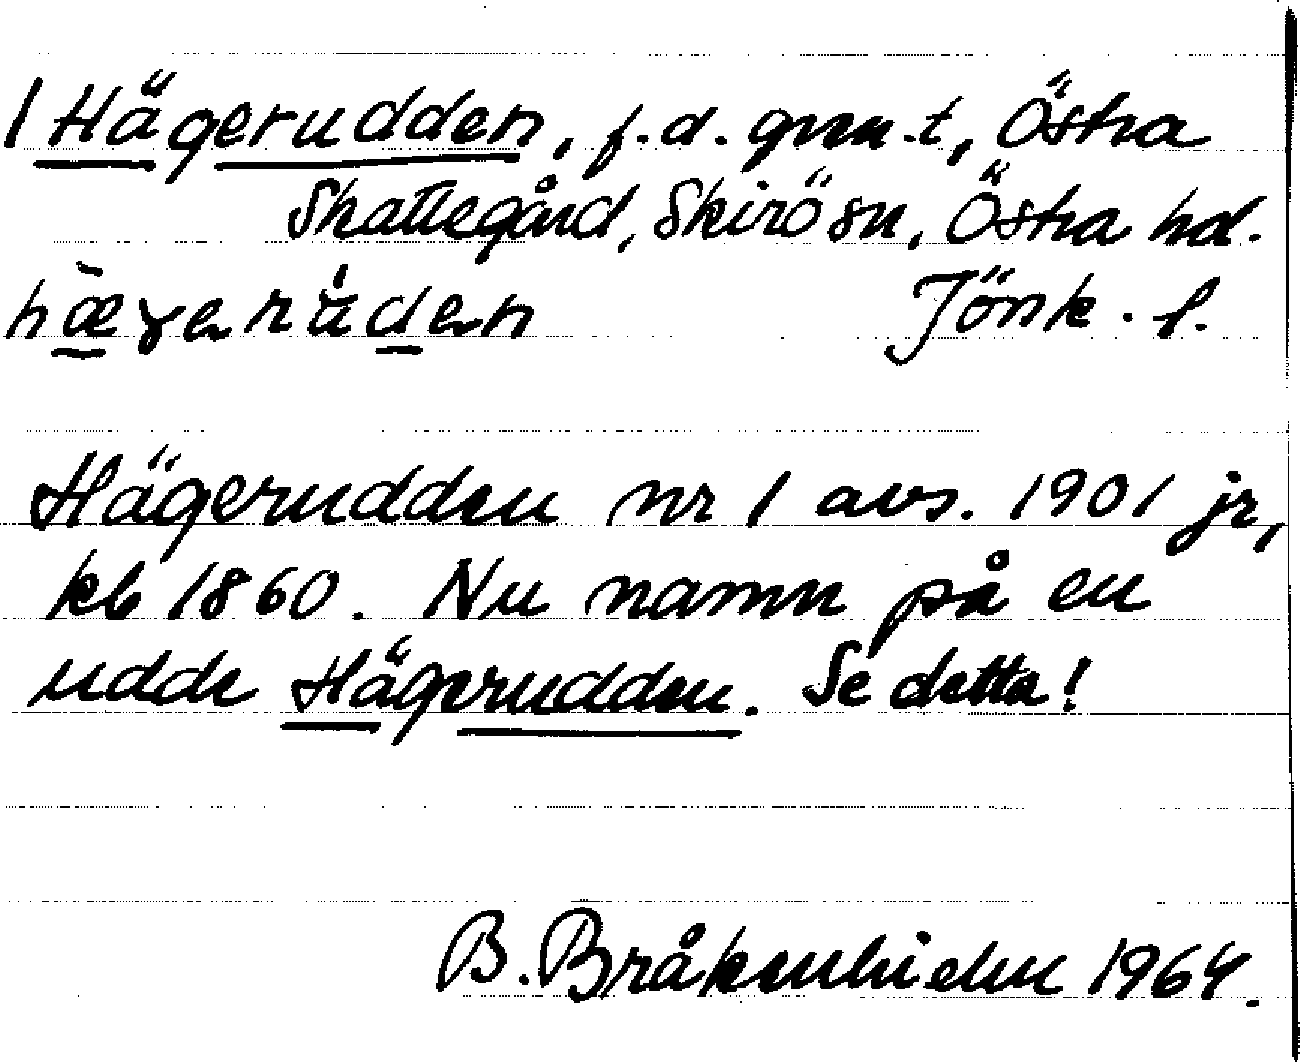 1 Hägerudden, f.d. gren-t, Östra
Skattegård, Skirö sn, Östra hd.
hæ̀ɣerúden Jönk. l.
Hägerudden nr 1 avs. 1901 jr,
kb 1860. Nu namn på en
udde Hägerudden. Se detta!
B. Bråkenhielm 1964.